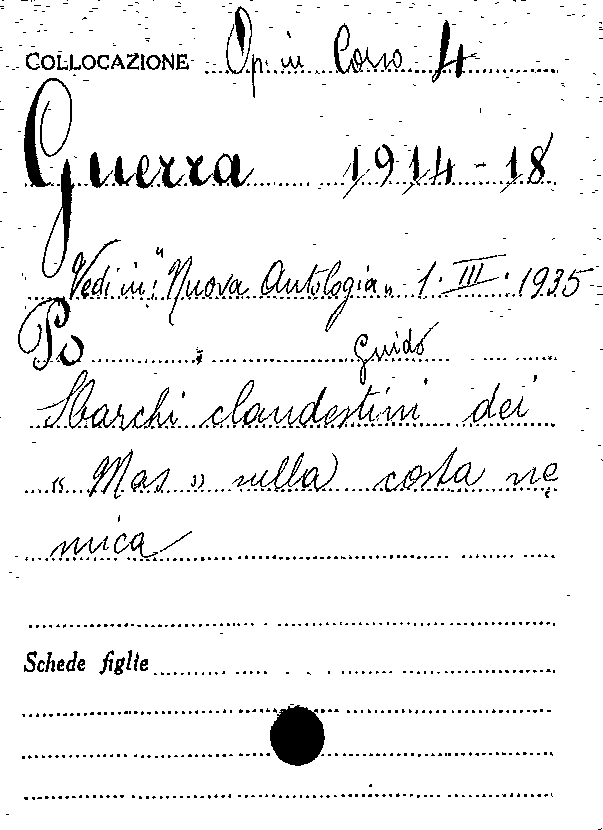 COLLOCAZIONE Op. in Corso 4
Guerra 1914-18
Vedi in: "Nuova Antologia" 1. III. 1935
Po Guido
Sbarchi clandestini dei
"Mas" sulla costa ne
mica
Schede figlie